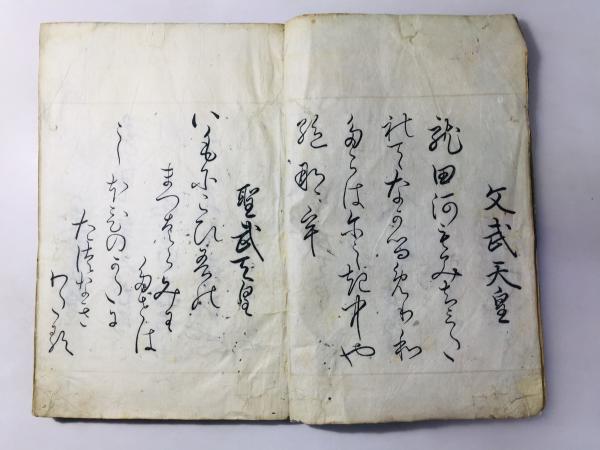 文武天皇
龍田河もみちみた
れてなかるめり和
たらはにしき中や
絶那牟
聖武天皇
いもにこひわかの
まつはらみわ
たせは
しほひのかたに
たつなき
わたる